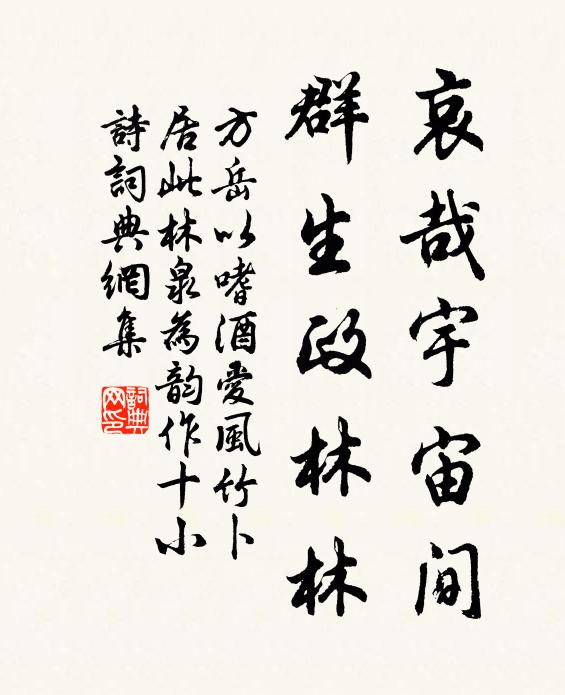 哀哉宇宙間
群生政林林
方岳以嗜酒愛風竹卜
居此林泉為韵作十小
詩詞典網集
詞典网印